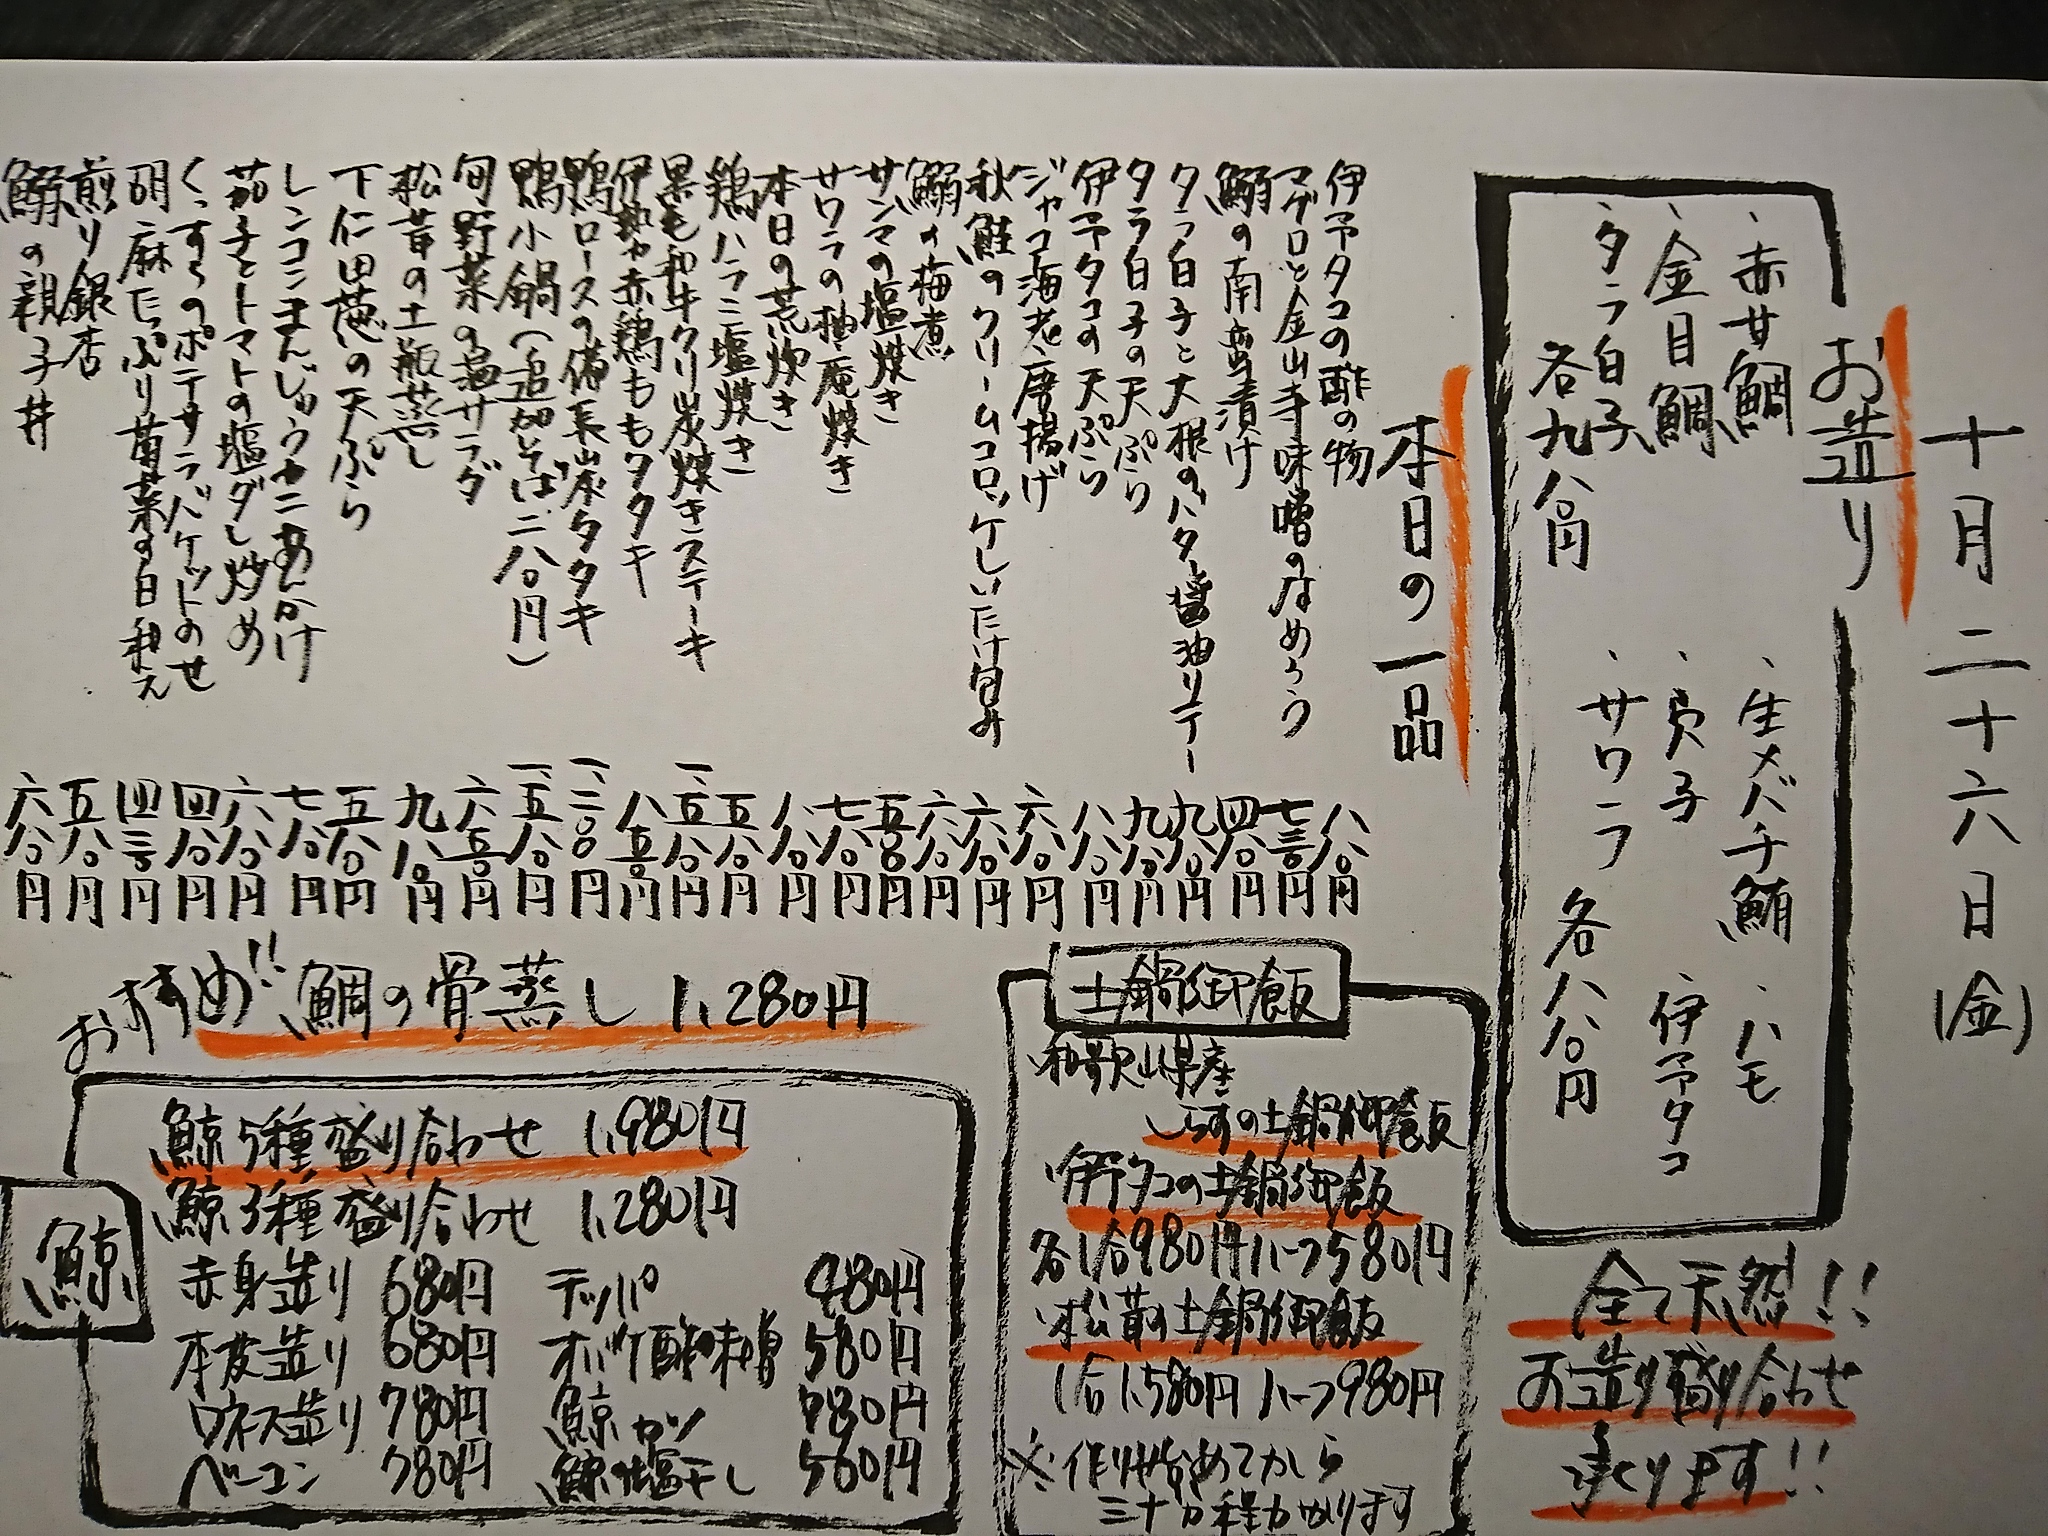 十月二十六日(金)
お造り
・赤甘鯛
・金目鯛
・タラ白子
各九八〇円
・生メバチ鮪
・ハモ
・貝子
・伊予タコ
・サワラ
各八八〇円
全て天然!!
お造り盛り合わせ
承ります!!
本日の一品
伊予タコの酢の物 八八〇円
マグロと金山寺味噌のなめろう 七三〇円
鰯の南蛮漬け 四八〇円
タラ白子と大根のバター醤油ソテー 九八〇円
タラ白子の天ぷら 九八〇円
伊予タコの天ぷら 八八〇円
ジャコ海老唐揚げ 六八〇円
秋鮭のクリームコロッケしいたけ包み 六八〇円
鰯の梅煮 六八〇円
サンマの塩焼き 五五〇円
サワラの柚庵焼き 七八〇円
本日の荒炊き 八八〇円
鶏ハラミ塩焼き 五八〇円
黒毛和牛クリ炭焼きステーキ 一、五八〇円
伊勢赤鶏ももタタキ 八五〇円
鴨ロースの備長炭タタキ 一、二〇〇円
鴨小鍋(追加そば二八〇円) 一、五八〇円
旬野菜の温サラダ 六五〇円
松茸の土瓶蒸し 九八〇円
下仁田葱の天ぷら 五八〇円
レンコンまんじゅうカニあんかけ 七八〇円
茄子とトマトの塩ダレ炒め 六八〇円
くっすらのポテサラバケットのせ 四八〇円
胡麻たっぷり菊菜の白和え 四三〇円
煎り銀杏 五八〇円
鰯の親子丼 六八〇円
土鍋御飯
・和歌山県産
しらすの土鍋御飯
・伊予タコの土鍋御飯
各1合980円ハーフ580円
・松茸の土鍋御飯
1合1,580円 ハーフ980円
※作り始めてから
三十分程かかります
おすすめ!! 鯛の骨蒸し 1,280円
鯨
鯨5種盛り合わせ 1,980円
鯨3種盛り合わせ 1,280円
赤身造り 680円 テッパ 480円
本皮造り 680円 オバケ酢味噌 580円
ウネス造り 780円 鯨カツ 780円
ベーコン 780円 鯨の塩干し 560円